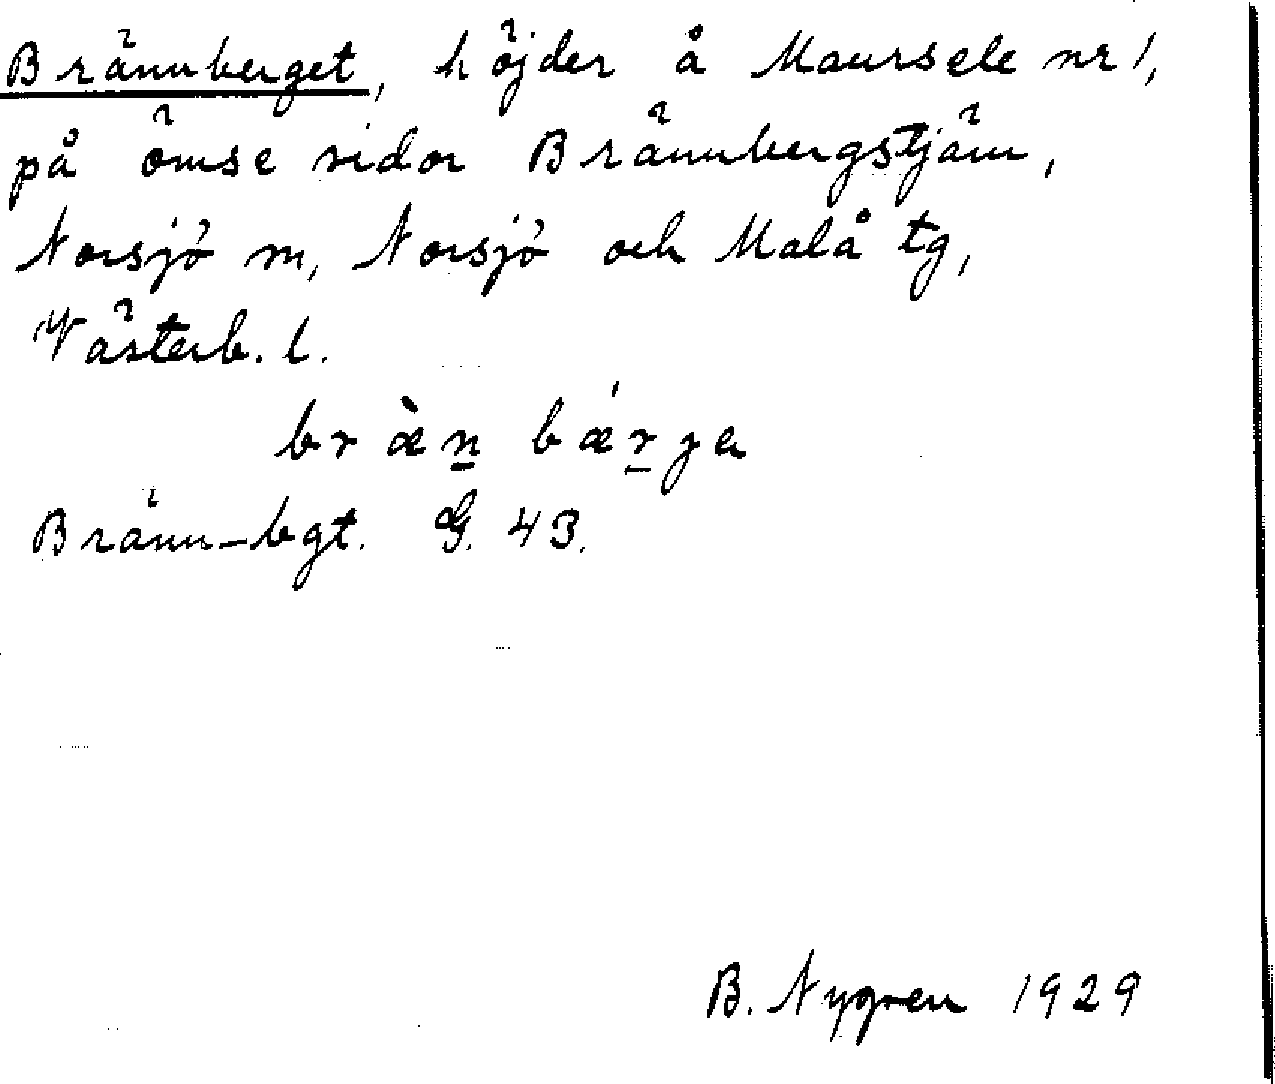 Brännberget, höjder å Maursele nr 1,
på ömse sidor Brännbergstjärn,
Norsjö sn, Norsjö och Malå tg,
Västerb. l.
bræ̀n̲ bǽr̲ɟa
Bränn-bgt. G. 43.
B. Nygren 1929